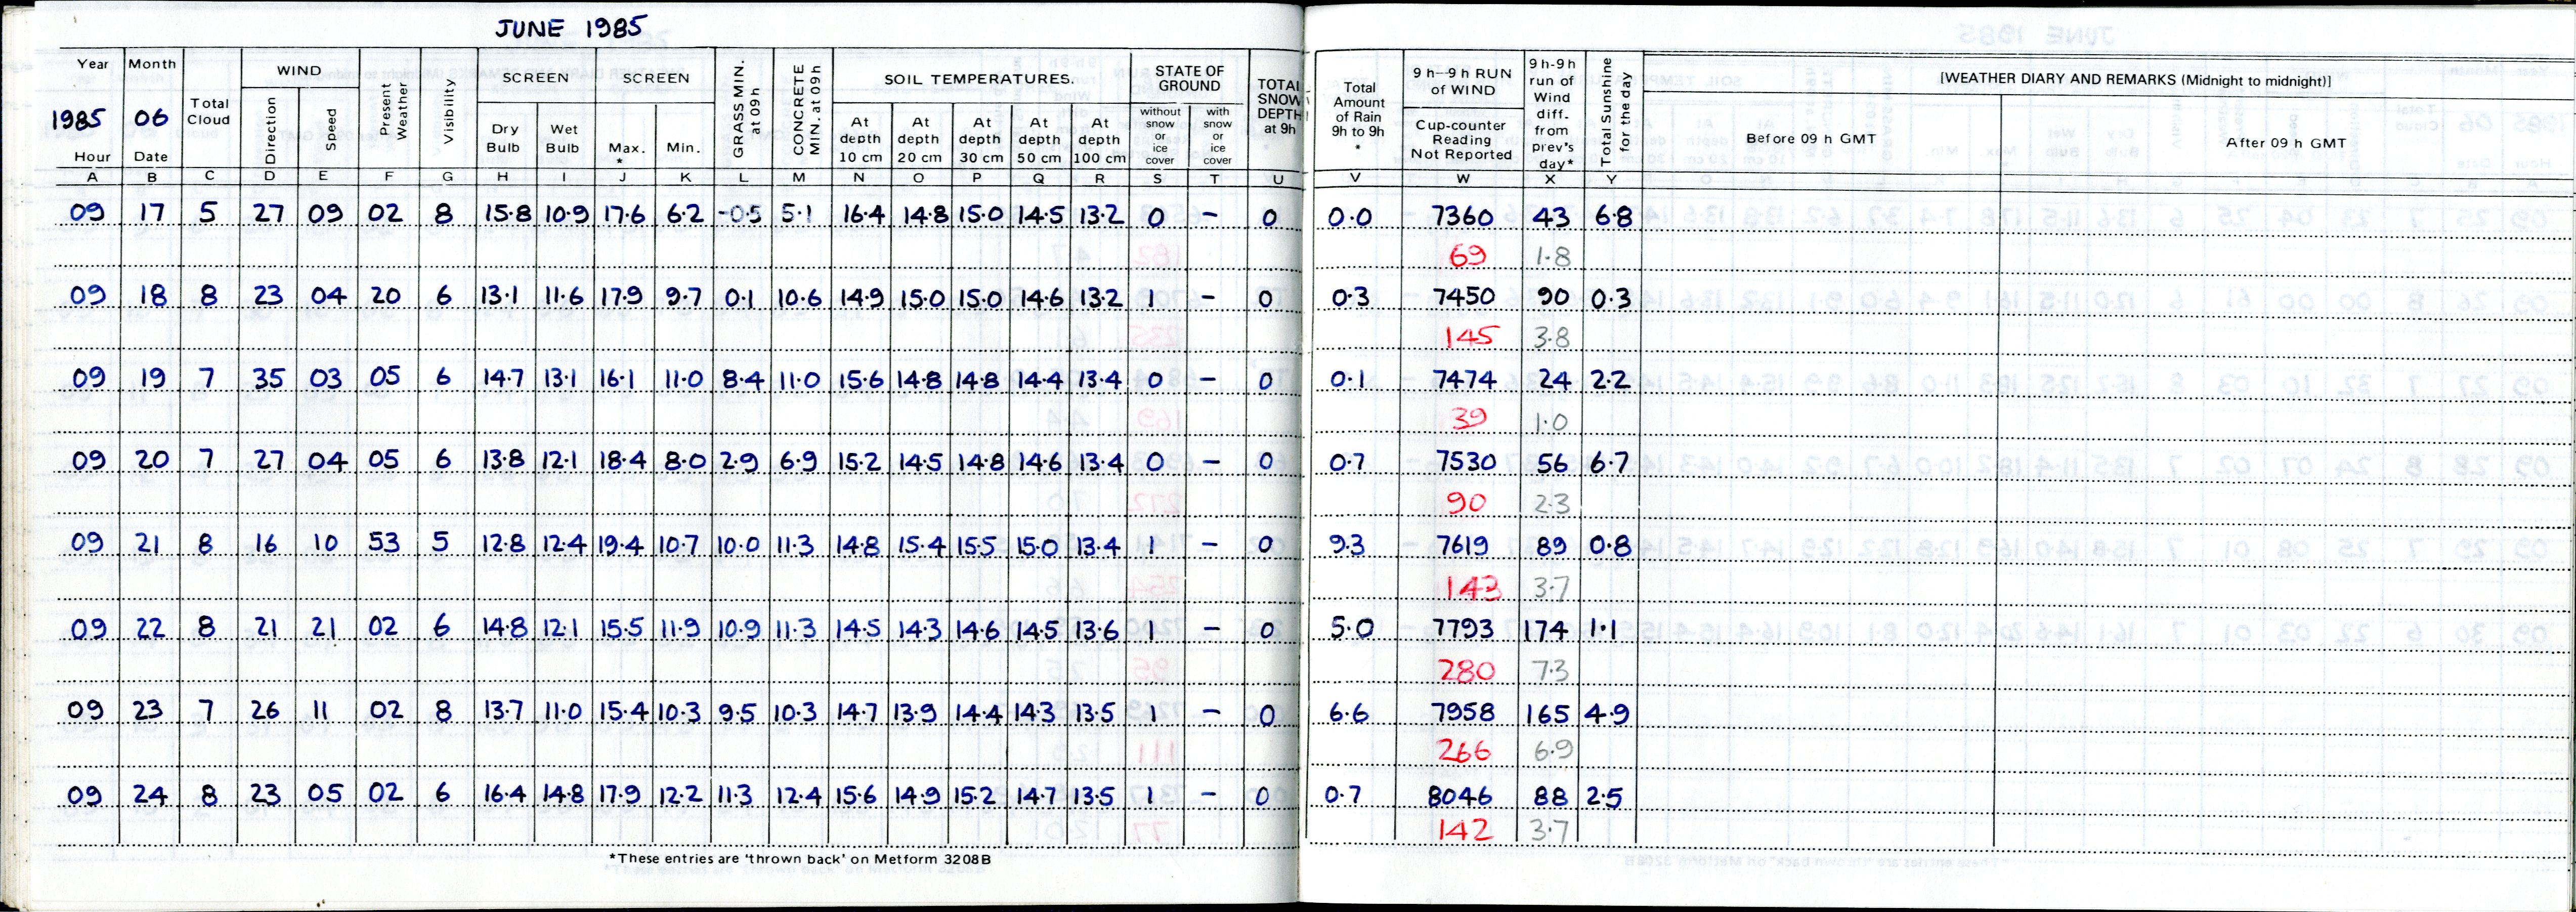 JUNE 1985
Year Month WIND SCREEN SCREEN SOIL TEMPERATURES. STATE OF GROUND
1985 06 Total Cloud Direction Speed Present Weather Visibility Dry Bulb Wet Bulb Max. * Min. GRASS MIN. at 09h CONCRETE MIN. at 09h At depth 10 cm At depth 20 cm At depth 30 cm At depth 50 cm At depth 100 cm without snow or ice cover with snow or ice cover TOTAL SNOW DEPTH at 9h
Hour Date
Total Amount of Rain 9h to 9h * 9 h–9 h RUN of WIND Cup-counter Reading Not Reported 9 h-9 h run of Wind diff. from prev's day* Total Sunshine for the day [WEATHER DIARY AND REMARKS (Midnight to midnight)]
Before 09 h GMT After 09 h GMT
A B C D E F G H I J K L M N O P Q R S T U V W X Y
09 17 5 27 09 02 8 15.8 10.9 17.6 6.2 -0.5 5.1 16.4 14.8 15.0 14.5 13.2 0 – 0 0.0 7360 43 6.8
69 1.8
09 18 8 23 04 20 6 13.1 11.6 17.9 9.7 0.1 10.6 14.9 15.0 15.0 14.6 13.2 1 – 0 0.3 7450 90 0.3
145 3.8
09 19 7 35 03 05 6 14.7 13.1 16.1 11.0 8.4 11.0 15.6 14.8 14.8 14.4 13.4 0 – 0 0.1 7474 24 2.2
39 1.0
09 20 7 27 04 05 6 13.8 12.1 18.4 8.0 2.9 6.9 15.2 14.5 14.8 14.6 13.4 0 – 0 0.7 7530 56 6.7
90 2.3
09 21 8 16 10 53 5 12.8 12.4 19.4 10.7 10.0 11.3 14.8 15.4 15.5 15.0 13.4 1 – 0 9.3 7619 89 0.8
143 3.7
09 22 8 21 21 02 6 14.8 12.1 15.5 11.9 10.9 11.3 14.5 14.3 14.6 14.5 13.6 1 – 0 5.0 7793 174 1.1
280 7.3
09 23 7 26 11 02 8 13.7 11.0 15.4 10.3 9.5 10.3 14.7 13.9 14.4 14.3 13.5 1 – 0 6.6 7958 165 4.9
266 6.9
09 24 8 23 05 02 6 16.4 14.8 17.9 12.2 11.3 12.4 15.6 14.9 15.2 14.7 13.5 1 – 0 0.7 8046 88 2.5
142 3.7
*These entries are 'thrown back' on Metform 3208B